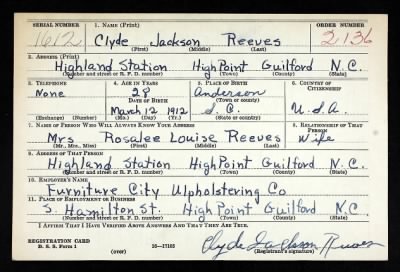 SERIAL NUMBER 1. NAME (Print) ORDER NUMBER
1612 Clyde Jackson Reeves 2136
(First) (Middle) (Last)
2. ADDRESS (Print)
Highland Station High Point Guilford N.C.
(Number and street or R. F. D. number) (Town) (County) (State)
3. TELEPHONE 4. AGE IN YEARS 5. PLACE OF BIRTH 6. COUNTRY OF CITIZENSHIP
None 28 Anderson
DATE OF BIRTH (Town or county)
March 12 1912 S.C. U.S.A.
(Exchange) (Number) (Mo.) (Day) (Yr.) (State or country)
7. NAME OF PERSON WHO WILL ALWAYS KNOW YOUR ADDRESS 8. RELATIONSHIP OF THAT PERSON
Mrs Rosalee Louise Reeves Wife
(Mr., Mrs., Miss) (First) (Middle) (Last)
9. ADDRESS OF THAT PERSON
Highland Station High Point Guilford N.C.
(Number and street or R. F. D. number) (Town) (County) (State)
10. EMPLOYER'S NAME
Furniture City Upholstering Co
11. PLACE OF EMPLOYMENT OR BUSINESS
S. Hamilton St. High Point Guilford N.C.
(Number and street or R. F. D. number) (Town) (County) (State)
I AFFIRM THAT I HAVE VERIFIED ABOVE ANSWERS AND THAT THEY ARE TRUE.
REGISTRATION CARD
D. S. S. Form 1 (over) 16—17105 Clyde Jackson Reeves
(Registrant's signature)